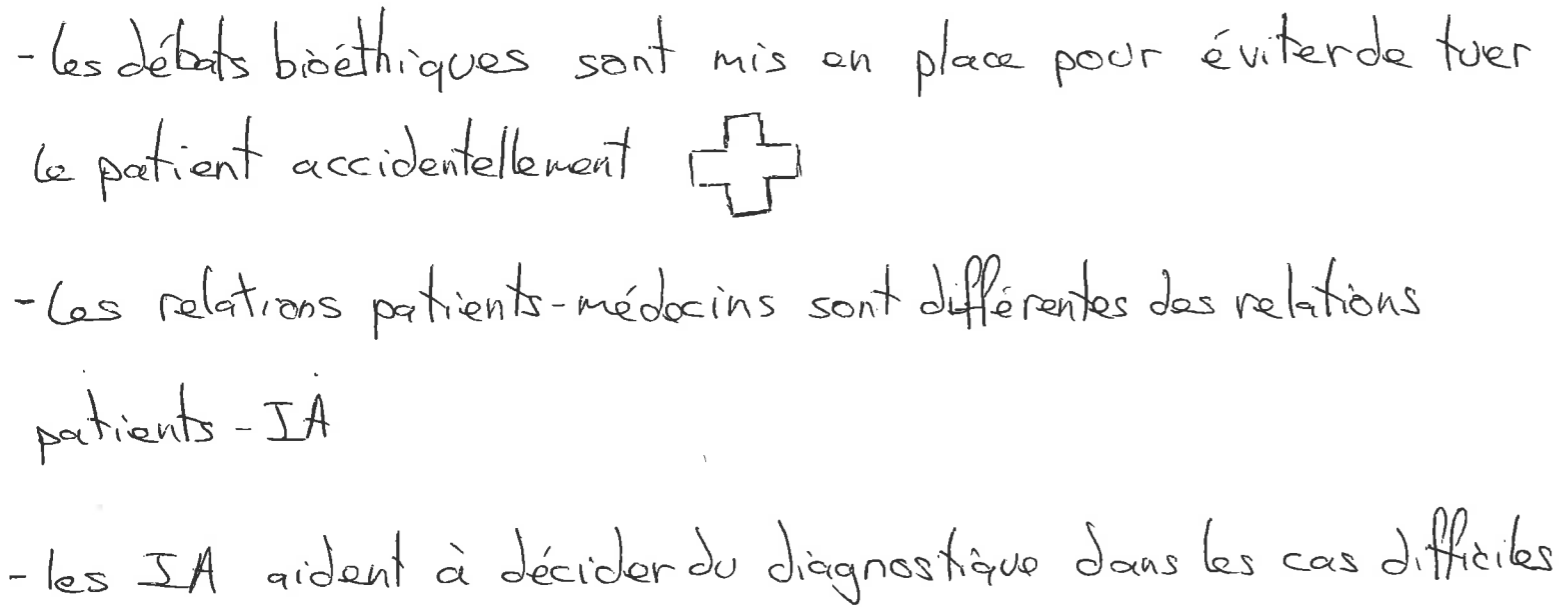 - les débats bioéthiques sont mis en place pour éviter de tuer
le patient accidentellement
- les relations patients-médecins sont différentes des relations
patients - IA
- les IA aident à décider du diagnostique dans les cas difficiles